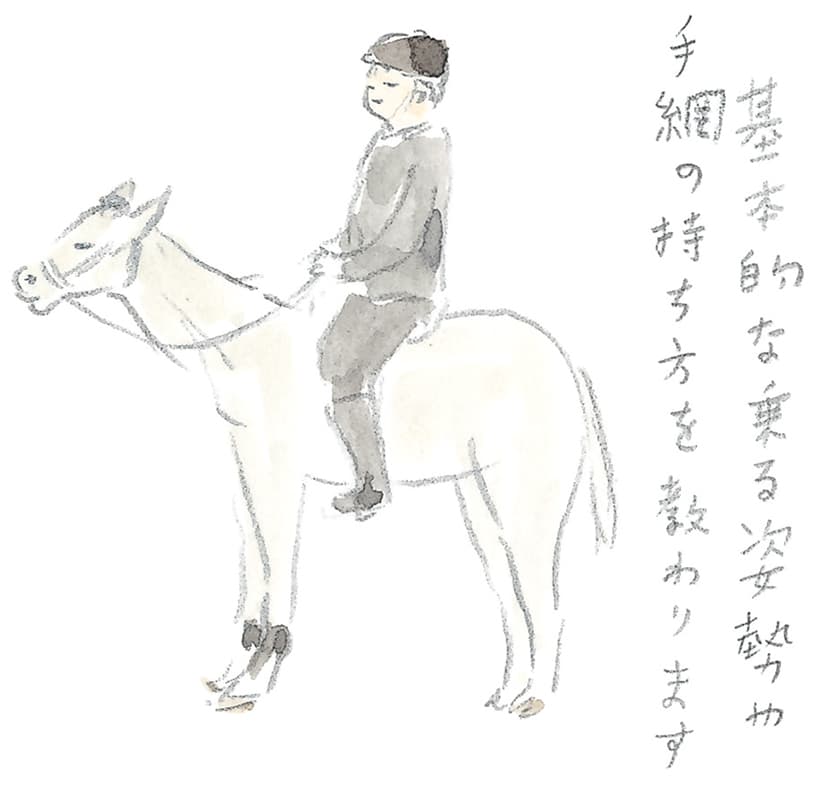 基本的な乗る姿勢や
手綱の持ち方を教わります